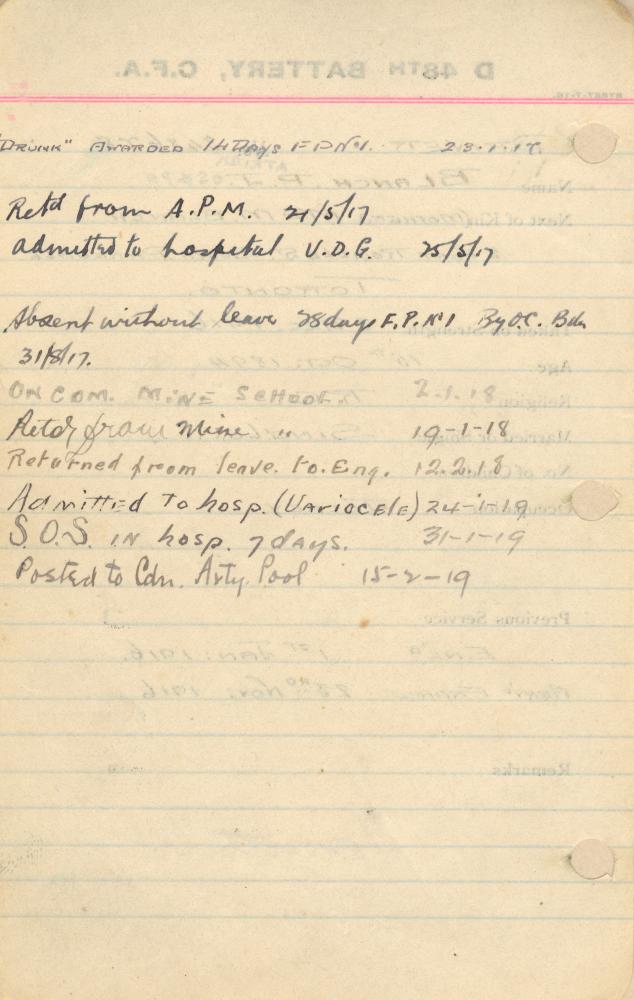 "DRUNK" AWARDED 14 DAYS F P Nº1. 23.1.17.
Retd from A.P.M. 21/5/17
admitted to hospital V.D.G. 25/5/17
Absent without leave 28 days F.P. Nº1 By O.C. Bde
31/8/17.
ON COM. MINE SCHOOL. 2.1.18
Retd from Mine " 19-1-18
Returned from leave. to. Eng. 12.2.18
Admitted to hosp. (VARIOCELE) 24-1-19
S.O.S. IN hosp. 7 days. 31-1-19
Posted to Cdn. Arty. Pool 15-2-19